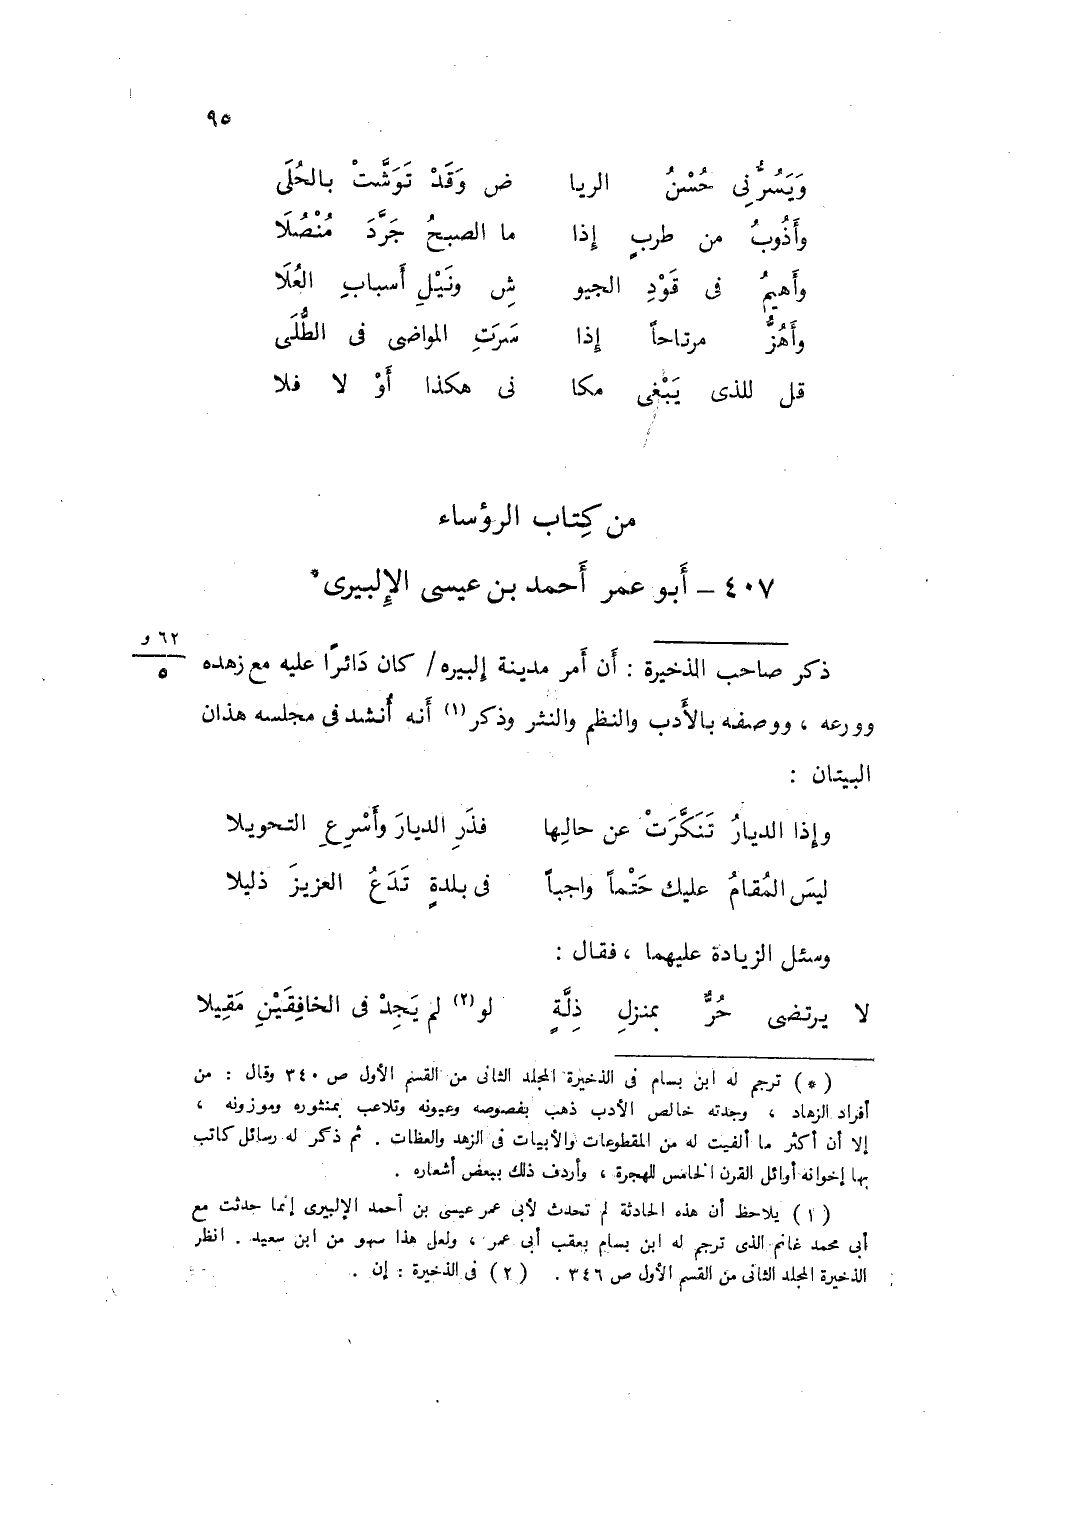 ٩٥
وَيَسُرُّنِى حُسْنُ الريا ض وَقَدْ تَوَشَّتْ بالحُلَى
وأَذُوبُ من طربٍ إذا ما الصبحُ جَرَّدَ مُنْصُلَا
وأَهيمُ فى قَوْدِ الجيو شِ ونَيْلِ أَسبابِ العُلَا
وأَهُزُّ مرتاحاً إذا سَرَتِ المواضى فى الطُّلَى
قل للذى يَبْغِى مكا نى هكذا أَوْ لا فلا
من كِتاب الرؤساء
٤٠٧ – أَبو عمر أَحمد بن عيسى الإِلبيرى*
٦٢ و
٥
ذكر صاحب الذخيرة : أَن أَمر مدينة إلبيره/ كان دَائرًا عليه مع زهده
وورعه ، ووصفه بالأَدب والنظم والنثر وذكر(١) أَنه أُنشد فى مجلسه هذان
البيتان :
وإِذا الديارُ تَنَكَّرَتْ عن حالِها فذَرِ الديارَ وأَسْرِعِ التحويلا
ليسَ المُقامُ عليك حَتْماً واجباً فى بلدةٍ تَدَعُ العزيزَ ذليلا
وسئل الزيادة عليهما ، فقال :
لا يرتضى حُرٌّ بمنزلِ ذِلَّةٍ لو(٢) لم يَجِدْ فى الخافِقَيْنِ مَقِيلا
(*) ترجم له ابن بسام فى الذخيرة المجلد الثانى من القسم الأول ص ٣٤٠ وقال : من
أفراد الزهاد ، وجدته خالص الأدب ذهب بفصوصه وعيونه وتلاعب بمنثوره وموزونه ،
إلا أن أكثر ما ألفيت له من المقطوعات والأبيات فى الزهد والعظات . ثم ذكر له رسائل كاتب
بها إخوانه أوائل القرن الخامس للهجرة ، وأردف ذلك ببعض أشعاره .
(١) يلاحظ أن هذه الحادثة لم تحدث لأبى عمر عيسى بن أحمد الإلبيرى إنما حدثت مع
أبى محمد غانم الذى ترجم له ابن بسام بعقب أبى عمر ، ولعل هذا سهو من ابن سعيد . انظر
الذخيرة المجلد الثانى من القسم الأول ص ٣٤٦ . (٢) فى الذخيرة : إن .